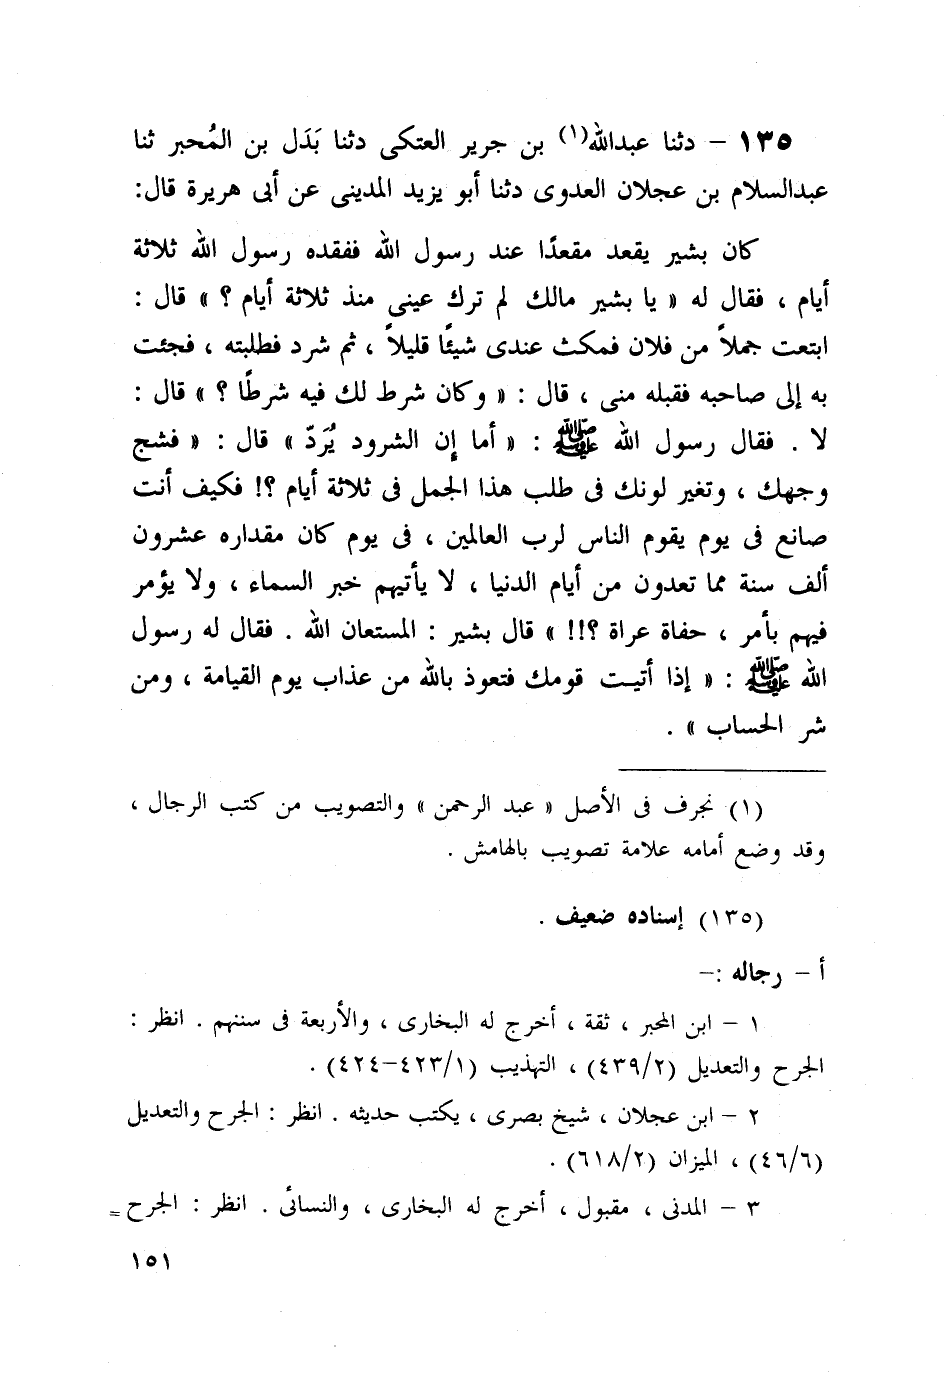 ١٣٥ – دثنا عبدالله(١) بن جرير العتكى دثنا بَدَل بن المُحبر ثنا
عبدالسلام بن عجلان العدوى دثنا أبو يزيد المدينى عن أبى هريرة قال:
كان بشير يقعد مقعدًا عند رسول الله ففقده رسول الله ثلاثة
أيام ، فقال له « يا بشير مالك لم ترك عينى منذ ثلاثة أيام ؟ » قال :
ابتعت جملاً من فلان فمكث عندى شيئًا قليلاً ، ثم شرد فطلبته ، فجئت
به إلى صاحبه فقبله منى ، قال : « وكان شرط لك فيه شرطًا ؟ » قال :
لا . فقال رسول الله ﷺ : « أما إن الشرود يُرَدّ » قال : « فشج
وجهك ، وتغير لونك فى طلب هذا الجمل فى ثلاثة أيام ؟! فكيف أنت
صانع فى يوم يقوم الناس لرب العالمين ، فى يوم كان مقداره عشرون
ألف سنة مما تعدون من أيام الدنيا ، لا يأتيهم خبر السماء ، ولا يؤمر
فيهم بأمر ، حفاة عراة ؟!!! » قال بشير : المستعان الله . فقال له رسول
الله ﷺ : « إذا أتيت قومك فتعوذ بالله من عذاب يوم القيامة ، ومن
شر الحساب » .
(١) نجرف فى الأصل « عبد الرحمن » والتصويب من كتب الرجال ،
وقد وضع أمامه علامة تصويب بالهامش .
(١٣٥) إسناده ضعيف .
أ – رجاله :–
١ – ابن المحبر ، ثقة ، أخرج له البخارى ، والأربعة فى سننهم . انظر :
الجرح والتعديل (٤٣٩/٢) ، التهذيب (٤٢٣/١–٤٢٤) .
٢ – ابن عجلان ، شيخ بصرى ، يكتب حديثه . انظر : الجرح والتعديل
(٤٦/٦) ، الميزان (٦١٨/٢) .
٣ – المدنى ، مقبول ، أخرج له البخارى ، والنسائى . انظر : الجرح =
١٥١